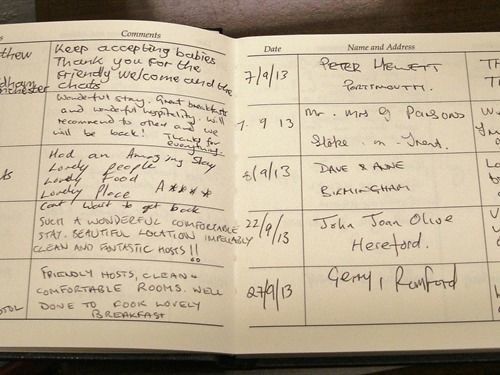 Comments
thew
Keep accepting babies
Thank you for the
friendly welcome and the
chats
dham
nchester
Wonderful stay. Great breakfasts
and wonderful hospitality. Will
recommend to other and we
will be back! Thanks for
everything
Had an Amazing stay
Lovely people
Lovely food
Lovely Place A****
Cant wait to get back
SUCH A WONDERFUL COMFORTABLE
STAY. BEAUTIFUL LOCATION
CLEAN AND FANTASTIC HOSTS!!
FRIENDLY HOSTS, CLEAN +
COMFORTABLE ROOMS. WELL
DONE TO FOOK LOVELY
BREAKFAST
TOL
Date
Name and Address
7/9/13
PETER HEWETT
PORTSMOUTH.
7. 9 13
Mr. Mrs G Parsons
Stoke - on - Trent.
8/9/13
DAVE & ANNE
BIRMINGHAM
22/9/13
John Joan Olive
Hereford.
27/9/13
Gerry, Romford